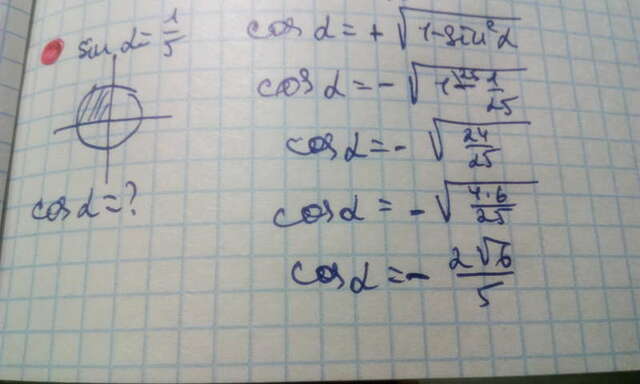 sin α = 1/5
cos α = ?
cos α = + √(1 - sin²α)
cos α = - √(1 - 1/25)
cos α = - √(24/25)
cos α = - √(4·6/25)
cos α = - 2√6/5